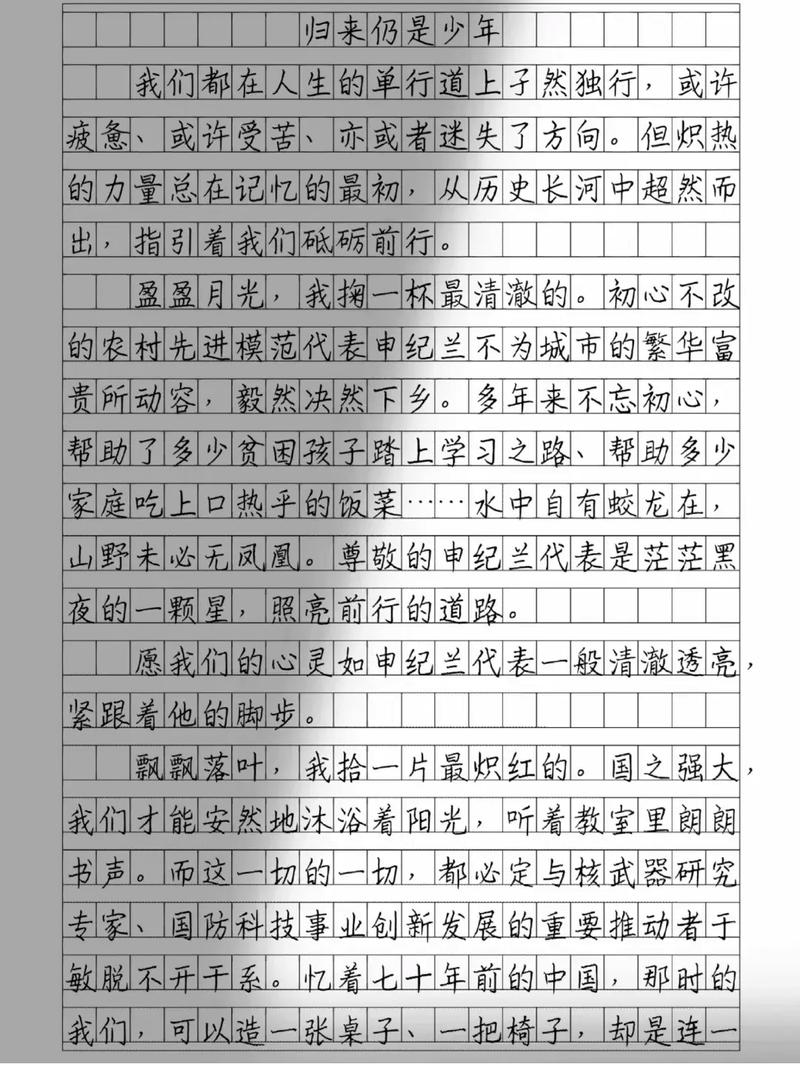 归来仍是少年
我们都在人生的单行道上孑然独行，或许
疲惫、或许受苦、亦或者迷失了方向。但炽热
的力量总在记忆的最初，从历史长河中超然而
出，指引着我们砥砺前行。
盈盈月光，我掬一杯最清澈的。初心不改
的农村先进模范代表申纪兰不为城市的繁华富
贵所动容，毅然决然下乡。多年来不忘初心，
帮助了多少贫困孩子踏上学习之路、帮助多少
家庭吃上口热乎的饭菜……水中自有蛟龙在，
山野未必无凤凰。尊敬的申纪兰代表是茫茫黑
夜的一颗星，照亮前行的道路。
愿我们的心灵如申纪兰代表一般清澈透亮，
紧跟着他的脚步。
飘飘落叶，我拾一片最炽红的。国之强大，
我们才能安然地沐浴着阳光，听着教室里朗朗
书声。而这一切的一切，都必定与核武器研究
专家、国防科技事业创新发展的重要推动者于
敏脱不开干系。忆着七十年前的中国，那时的
我们，可以造一张桌子、一把椅子，却是连一